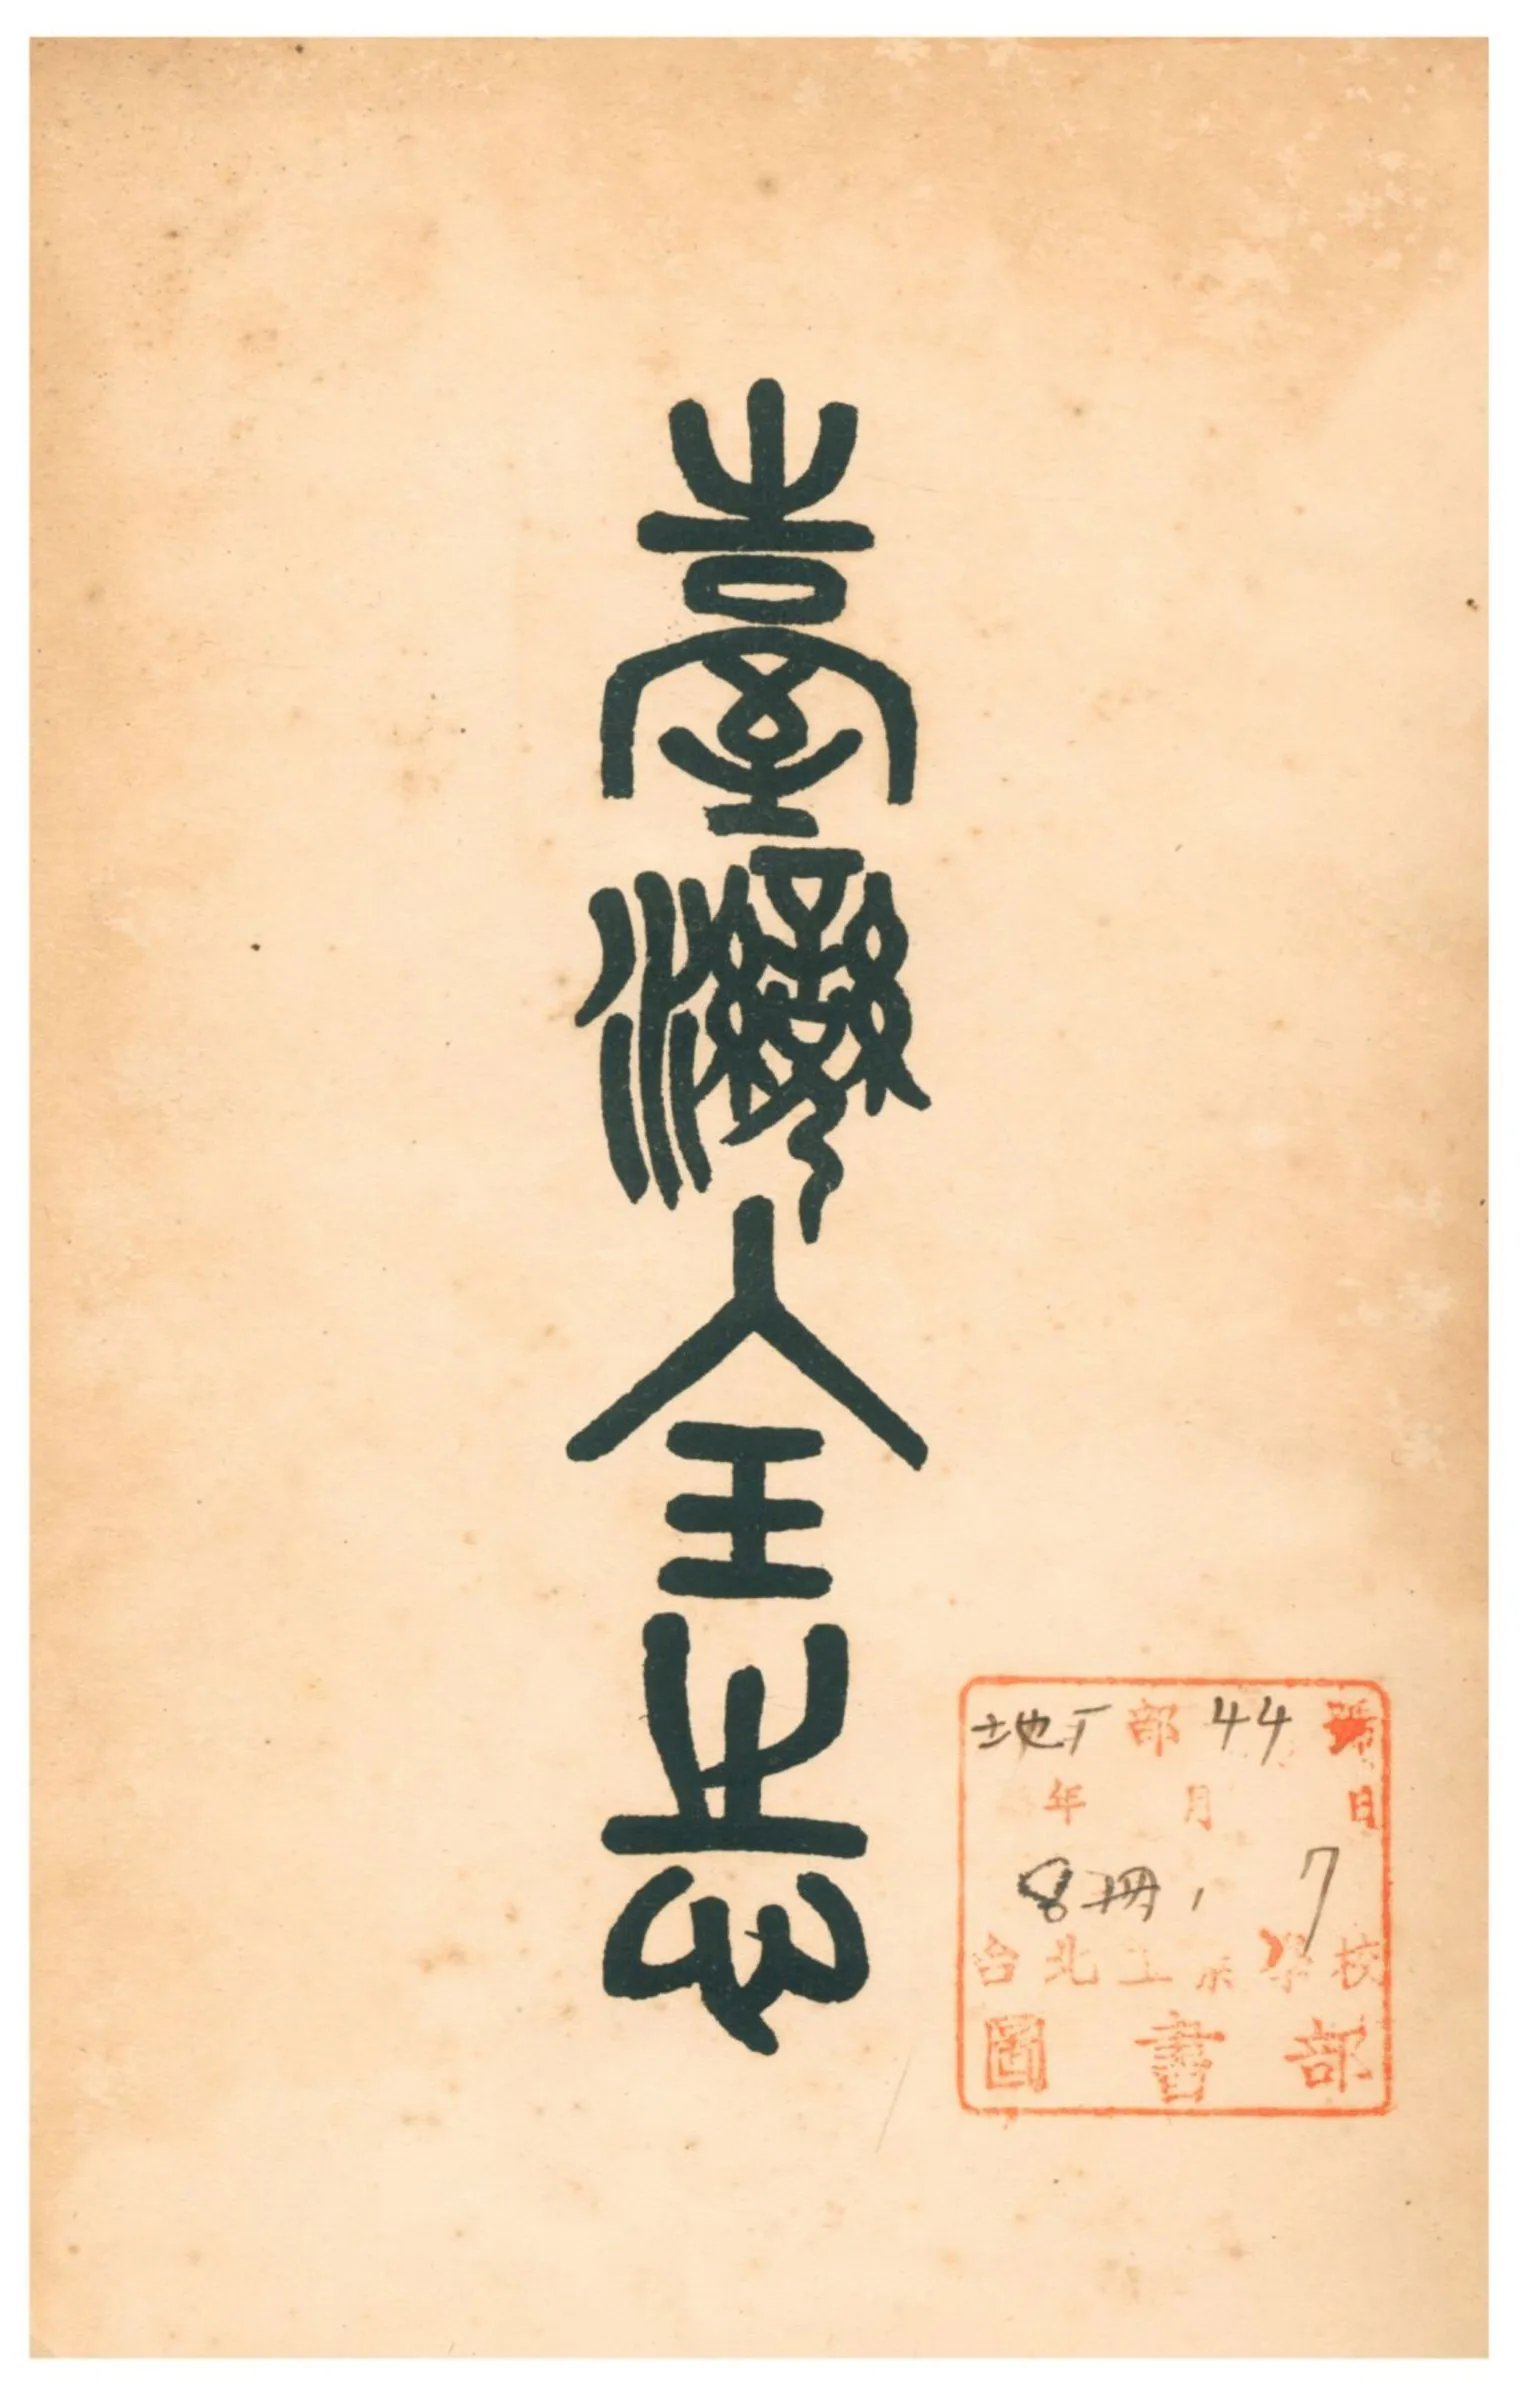 臺灣全志
地丁部44號
年 月 日
8冊, 7
台北工業學校
圖書部